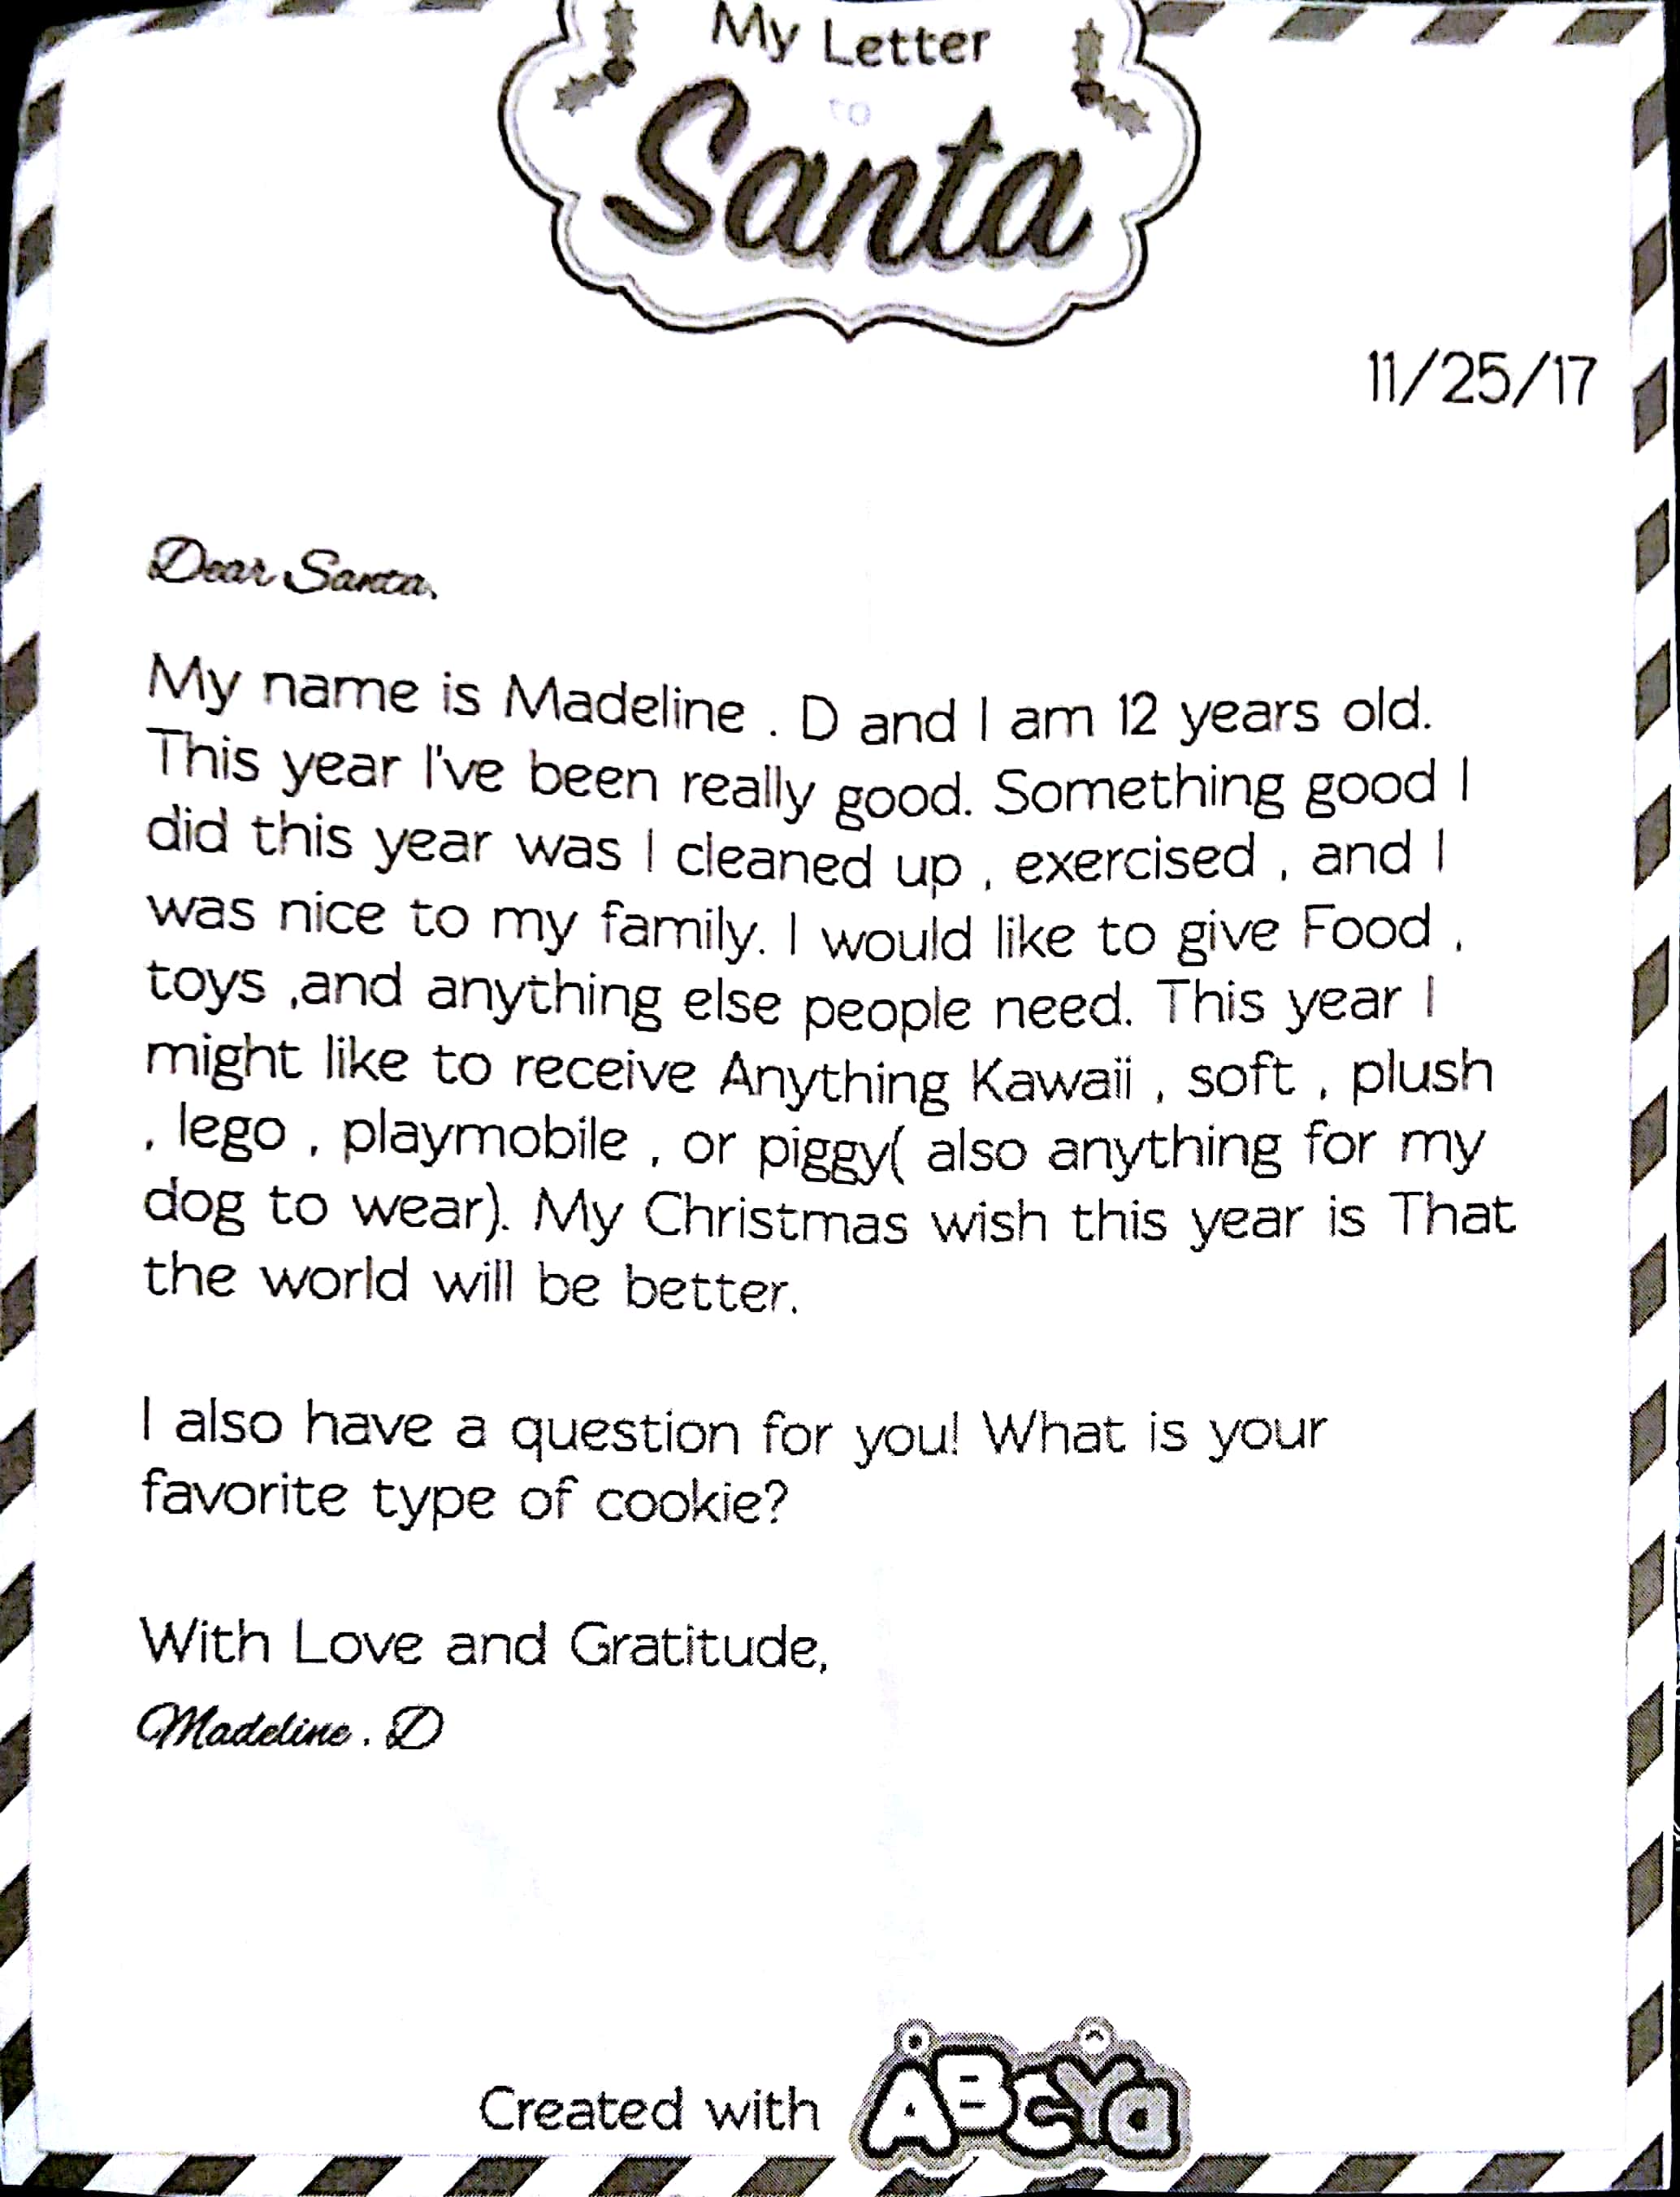 My Letter
to
Santa
11/25/17
Dear Santa,
My name is Madeline . D and I am 12 years old.
This year I've been really good. Something good I
did this year was I cleaned up , exercised , and I
was nice to my family. I would like to give Food ,
toys ,and anything else people need. This year I
might like to receive Anything Kawaii , soft , plush
, lego , playmobile , or piggy( also anything for my
dog to wear). My Christmas wish this year is That
the world will be better.
I also have a question for you! What is your
favorite type of cookie?
With Love and Gratitude,
Madeline . D
Created with ABCYa